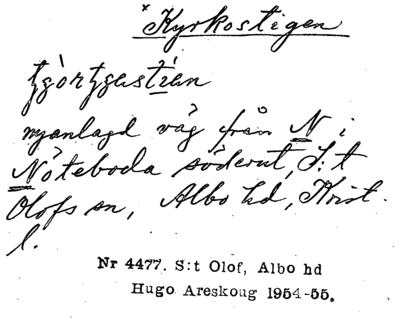 x Kyrkostigen
nyanlagd väg från N i
Nöteboda söderut, S:t
Olofs sn, Albo hd, Krist.
l.
Nr 4477. S:t Olof, Albo hd
Hugo Areskoug 1954-55.